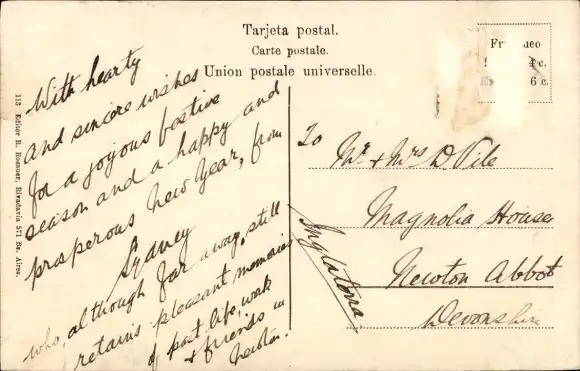 Tarjeta postal.
Carte postale.
Union postale universelle.
6 c.
113 Editor R. Rosauer, Rivadavia 571 Bs. Aires.
With hearty
and sincere wishes
for a joyous festive
season and a happy and
prosperous New Year, from
Sydney
who, although far away, still
retains pleasant memories
of past life, work
+ friends in
Newton.
To
Mr. + Mrs D. Vile
Magnolia House
Newton Abbot
Devonshire
Inglaterra